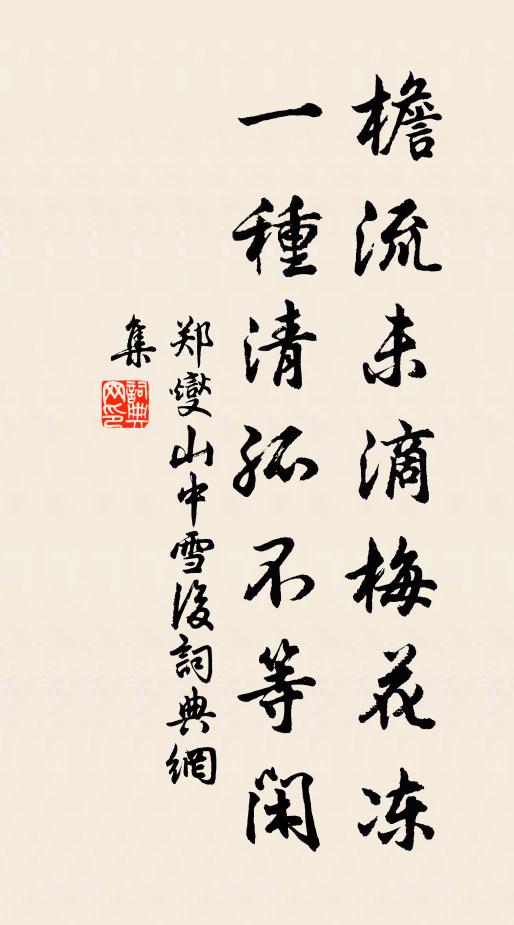 檐流未滴梅花冻
一種清孤不等闲
郑燮山中雪後詞典網
集
詞典網印